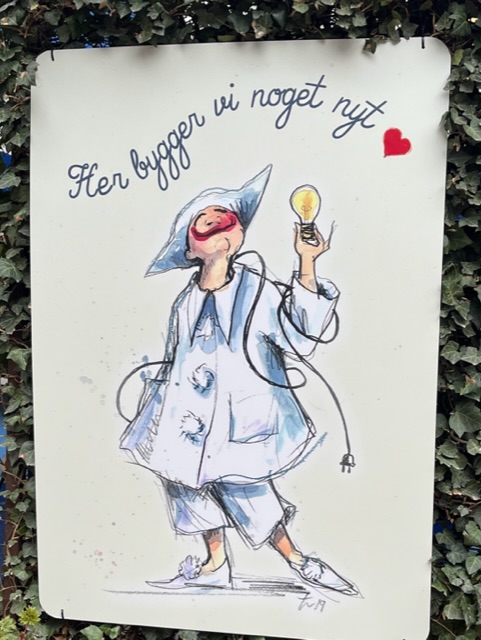 Her bygger vi noget nyt